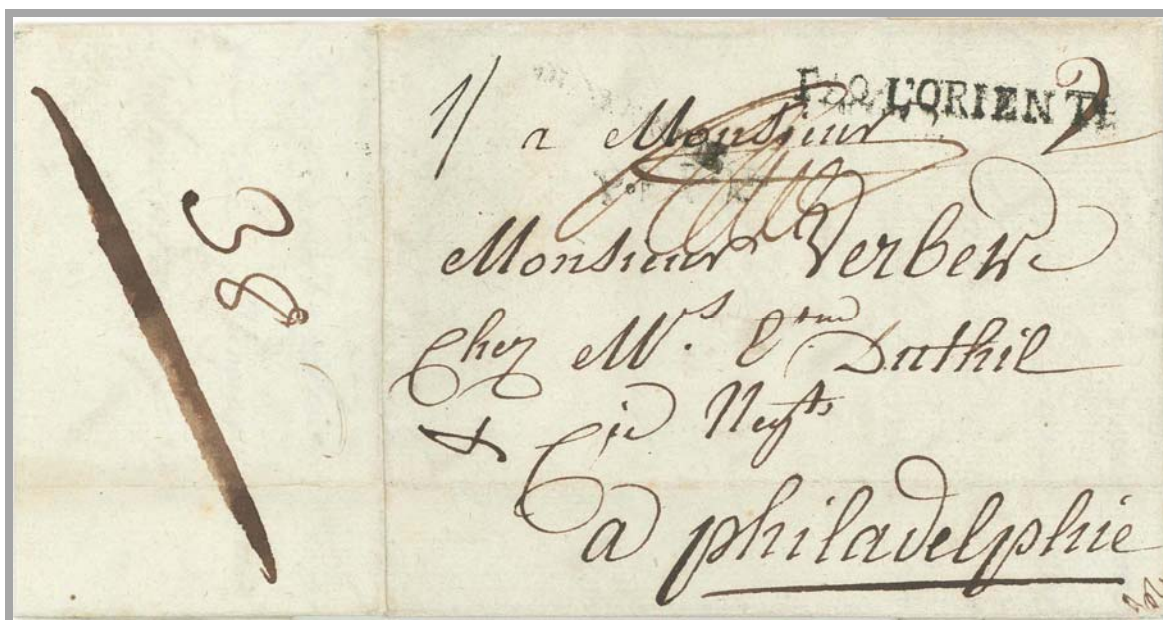 PAQ L'ORIENT
1/ a Monsieur 2
Monsieur Verbek
Chez Mrs. Etne Duthil
& Cie Negts
a philadelphie
38